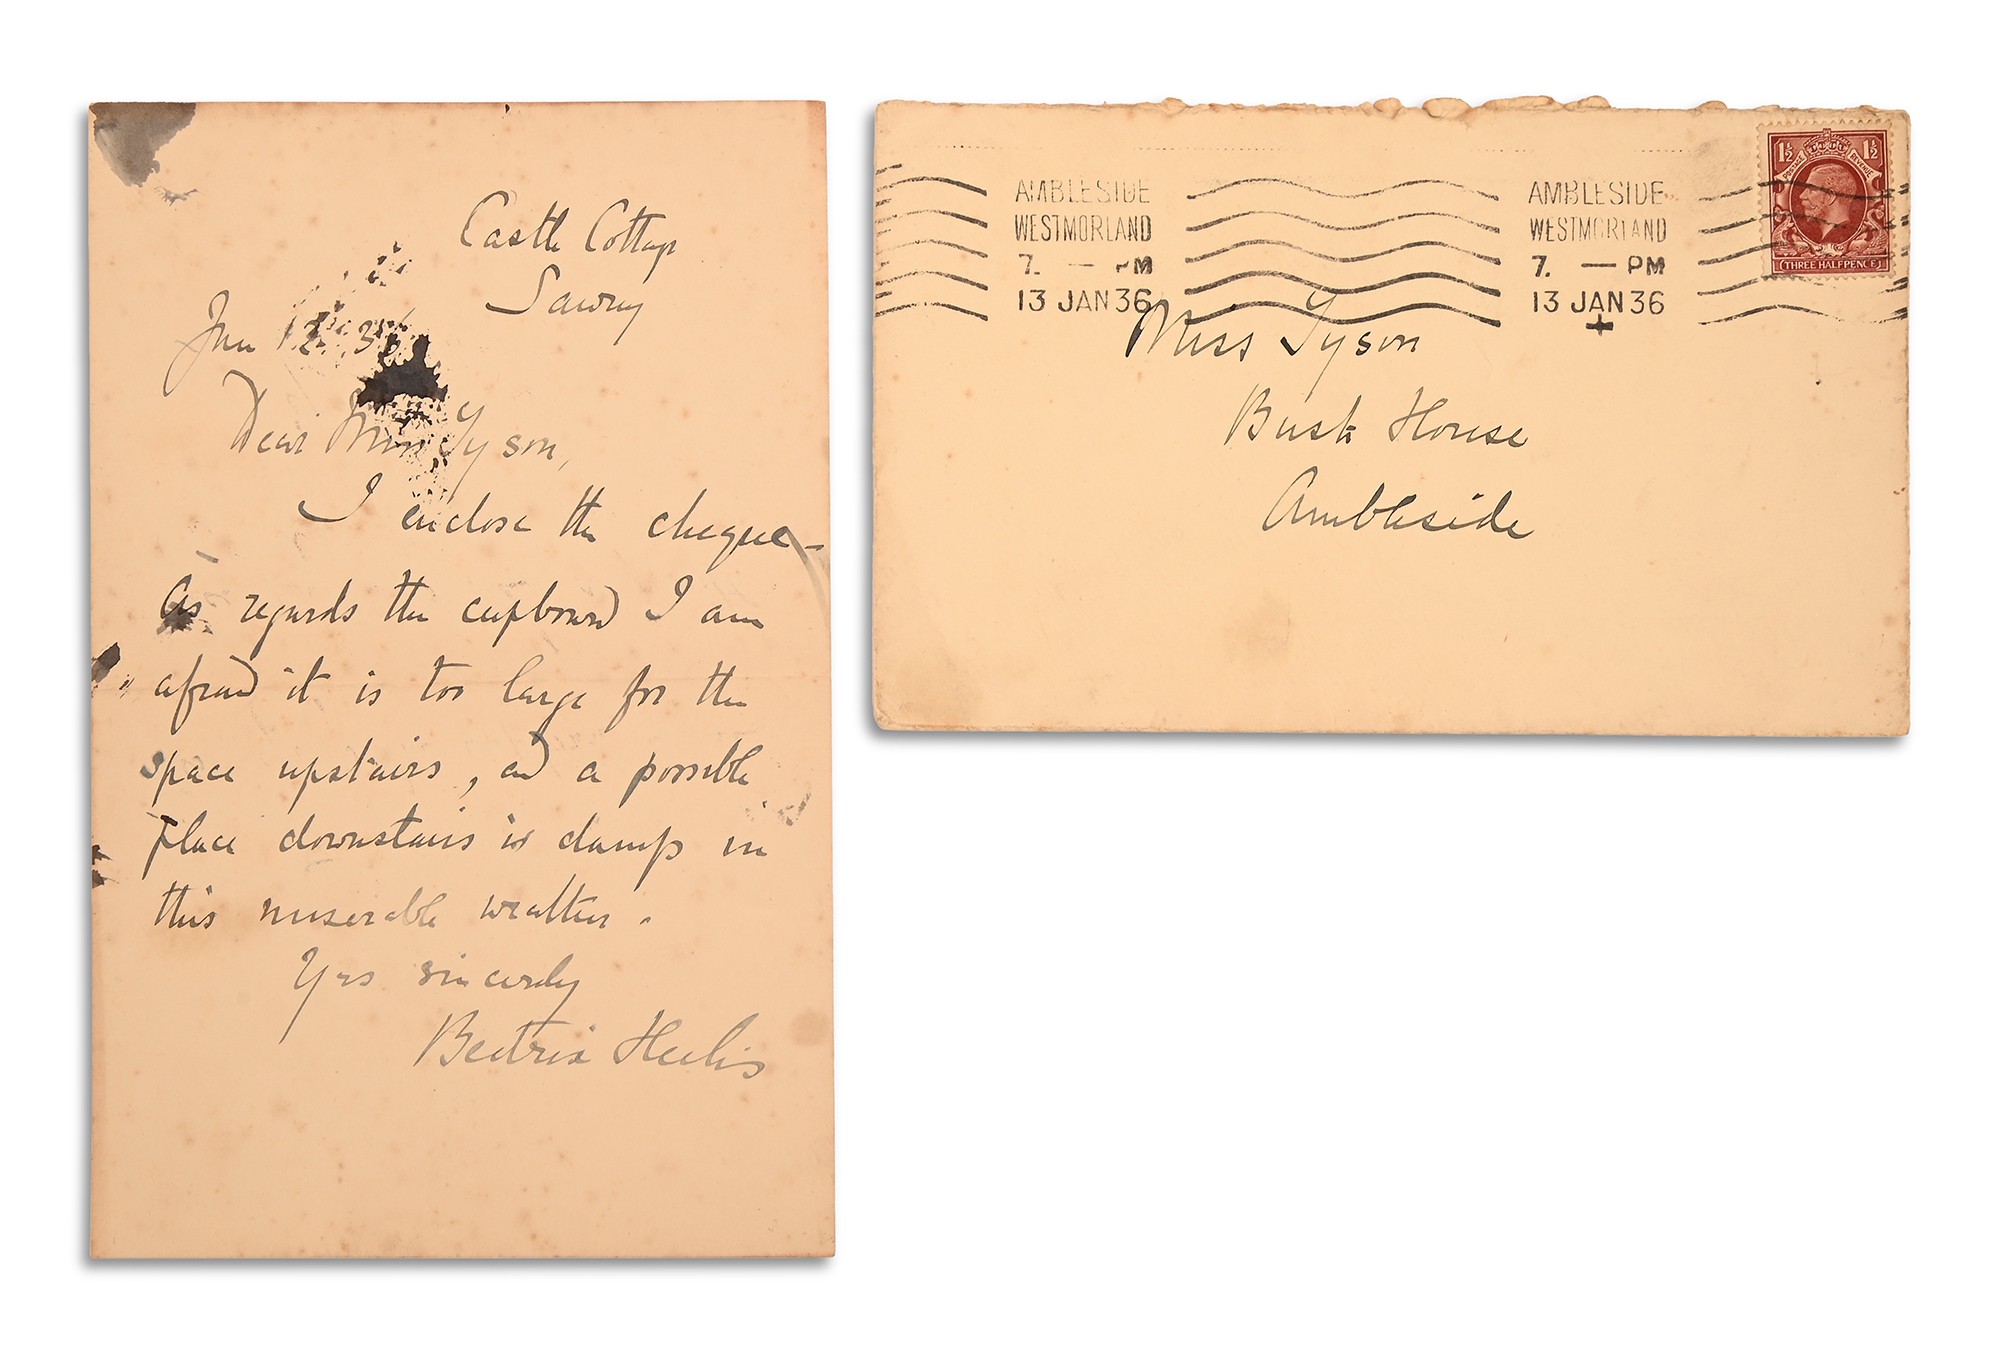 Castle Cottage
Sawrey
Jan 12. 36
Dear Miss Tyson,
I enclose the cheque –
As regards the cupboard I am
afraid it is too large for the
space upstairs, and a possible
place downstairs is damp in
this miserable weather.
Yrs sincerely
Beatrix Heelis
AMBLESIDE
WESTMORLAND
7. — PM
13 JAN 36
AMBLESIDE
WESTMORLAND
7. — PM
13 JAN 36
1½ 1½
POSTAGE REVENUE
THREE HALFPENCE
Miss Tyson
House
Ambleside